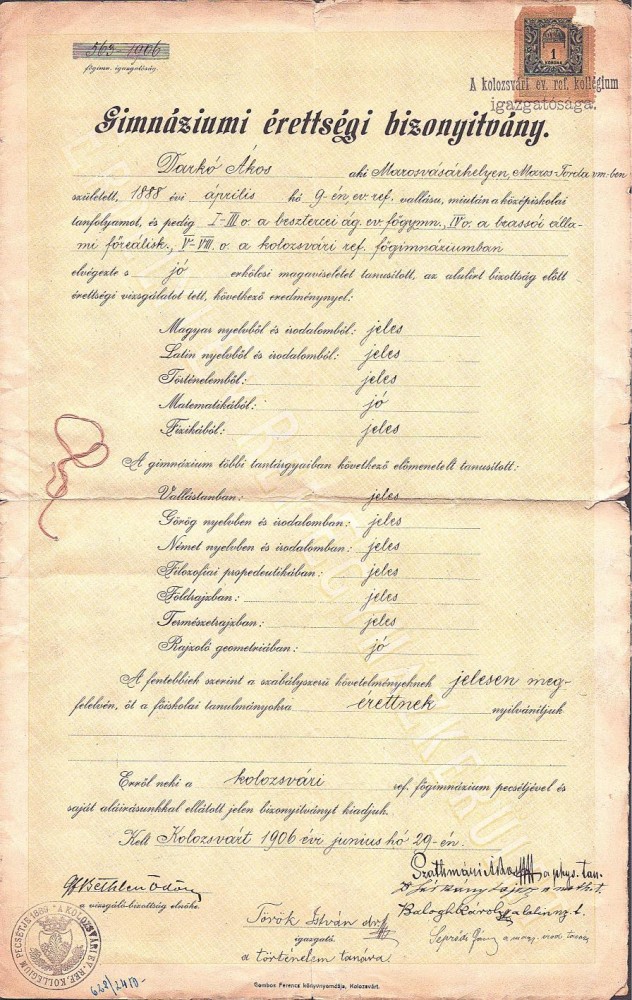 563-1906
főgimn. igazgatóság.
1
KORONA
A kolozsvári ev. ref. kollégium
igazgatósága.
Gimnáziumi érettségi bizonyitvány.
Darkó Ákos aki Marosvásárhelyen, Maros-Torda vm-ben
született, 1888 évi április hó 9-én, ev. ref. vallásu, miután a középiskolai
tanfolyamot, és pedig I-III o. a besztercei ág. ev. főgymn., IV o. a brassói álla-
mi főreálisk., V-VIII. o. a kolozsvári ref. főgimnáziumban
elvégezte s jó erkölcsi magaviseletet tanusított, az alulirt bizottság előtt
érettségi vizsgálatot tett, következő eredménynyel:
Magyar nyelvből és irodalomból: jeles
Latin nyelvből és irodalomból: jeles
Történelemből: jeles
Matematikából: jó
Fizikából: jeles
A gimnázium többi tantárgyaiban következő előmenetelt tanusított:
Vallástanban: jeles
Görög nyelvben és irodalomban: jeles
Német nyelvben és irodalomban: jeles
Filozofiai propedeutikában: jeles
Földrajzban: jeles
Természetrajzban: jeles
Rajzoló geometriában: jó
A fentebbiek szerint a szabályszerü követelményeknek jelesen meg-
felelvén, őt a főiskolai tanulmányokra érettnek nyilvánitjuk
Erről neki a kolozsvári ref. főgimnázium pecsétjével és
saját aláirásunkkal ellátott jelen bizonyitványt kiadjuk.
Kelt Kolozsvárt 1906 évi junius hó 29-én.
Gf Bethlen Ödön
a vizsgáló-bizottság elnöke.
Szathmári Ákos a phys. tan.
a math. t.
Balogh Károly a latin ny. t.
a magy. irod. tanára
Török István dr.
igazgató.
a történelem tanára
A KOLOZSVÁRI EV. REF. KOLLEGIUM PECSÉTJE 1869
628/2410-
Gombos Ferencz könyvnyomdája, Kolozsvárt.